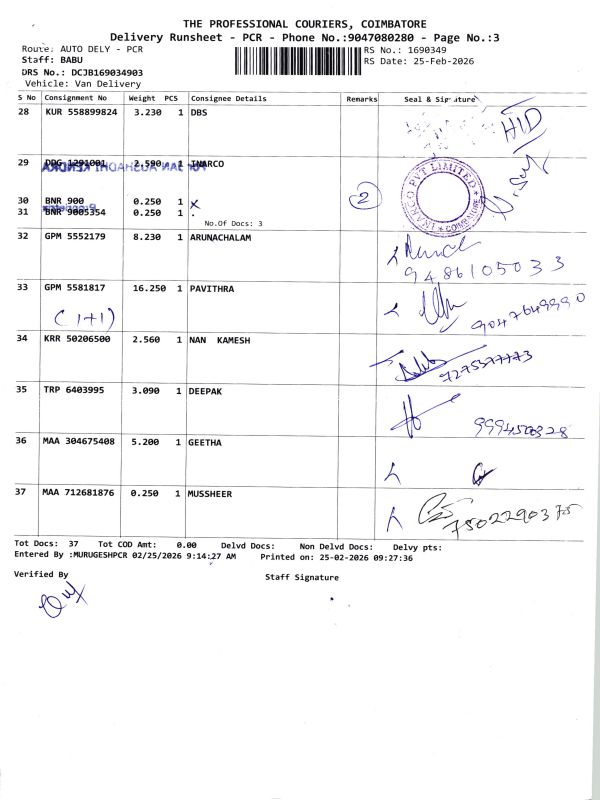 THE PROFESSIONAL COURIERS, COIMBATORE
Delivery Runsheet - PCR - Phone No.:9047080280 - Page No.:3
Route: AUTO DELY - PCR
RS No.: 1690349
Staff: BABU
RS Date: 25-Feb-2026
DRS No.: DCJB169034903
Vehicle: Van Delivery
S No Consignment No Weight PCS Consignee Details Remarks Seal & Signature
28 KUR 558899824 3.230 1 DBS
HID
29 DDG 1291001 2.590 1 INARCO
INARCO PVT LIMITED * COIMBATORE *
30 BNR 900 0.250 1 x
2
31 BNR 9005354 0.250 1 .
No.Of Docs: 3
32 GPM 5552179 8.230 1 ARUNACHALAM
9486105033
33 GPM 5581817 16.250 1 PAVITHRA
9047649990
(1+1)
34 KRR 50206500 2.560 1 NAN KAMESH
7275377773
35 TRP 6403995 3.090 1 DEEPAK
36 MAA 304675408 5.200 1 GEETHA
37 MAA 712681876 0.250 1 MUSSHEER
7502290375
Tot Docs: 37 Tot COD Amt: 0.00 Delvd Docs: Non Delvd Docs: Delvy pts:
Entered By :MURUGESHPCR 02/25/2026 9:14:27 AM Printed on: 25-02-2026 09:27:36
Verified By
Staff Signature